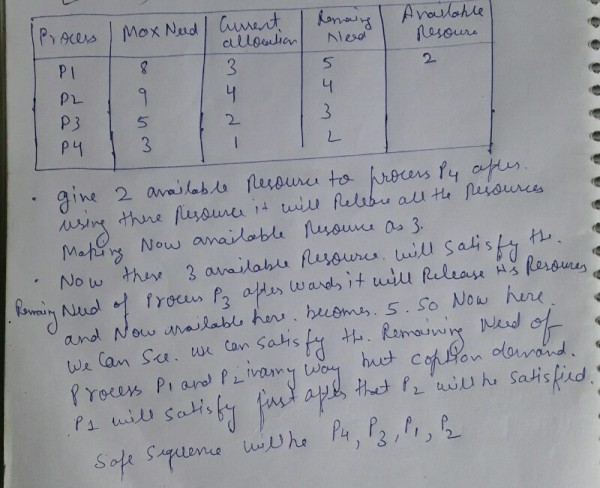 Process Max Need Current allocation Remaing Need Available Resource
P1 8 3 5 2
P2 9 4 4
P3 5 2 3
P4 3 1 2
• give 2 available Resource to process P4 after
using there Resource it will Release all the Resources
Making Now available Resource as 3.
• Now these 3 available Resource will satisfy the
Remaing Need of Process P3 after wards it will Release its Resources
and Now available here becomes 5. So Now here
we can see. we can satisfy the Remaining Need of
Process P1 and P2 in any way but option demand.
P1 will satisfy first after that P2 will be satisfied.
Safe Sequence will be P4, P3, P1, P2